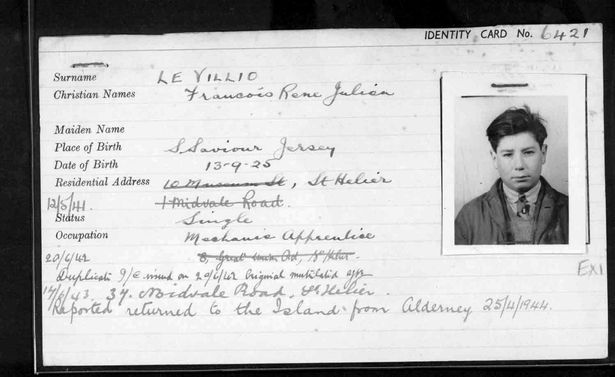 IDENTITY CARD No. 6421
Surname LE VILLIO
Christian Names Francois Rene Julien
Maiden Name
Place of Birth S. Saviour Jersey
Date of Birth 13-9-25
Residential Address 10 Museum St, St Helier
12/5/41. 1 Midvale Road.
Status Single
Occupation Mechanic Apprentice
20/6/42 8, Great Union Rd, St Helier
Duplicate I/C issued on 20/6/42 Original mutilated
17/6/43. 37. Midvale Road, St Helier.
Reported returned to the Island from Alderney 25/4/1944.